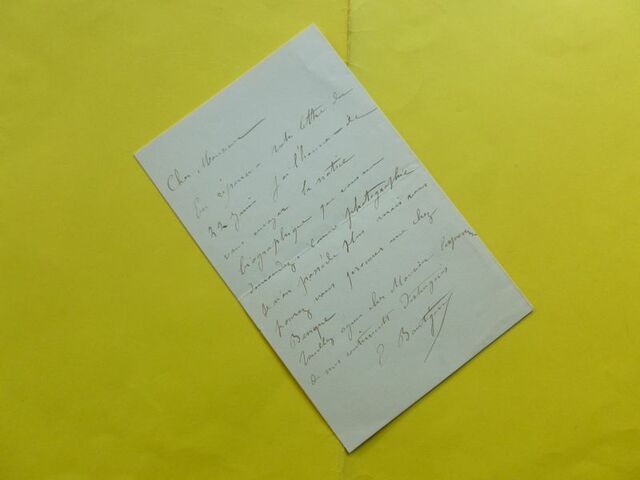 Cher Monsieur
En réponse à votre lettre du
22 Juin j'ai l'honneur de
vous envoyer la notice
biographique que vous me
demandez comme photographie
je n'en possède plus mais vous
pourrez vous procurer une chez
Benque
Veuillez agréer cher Monsieur l'expression
de mes sentiments distingués
E